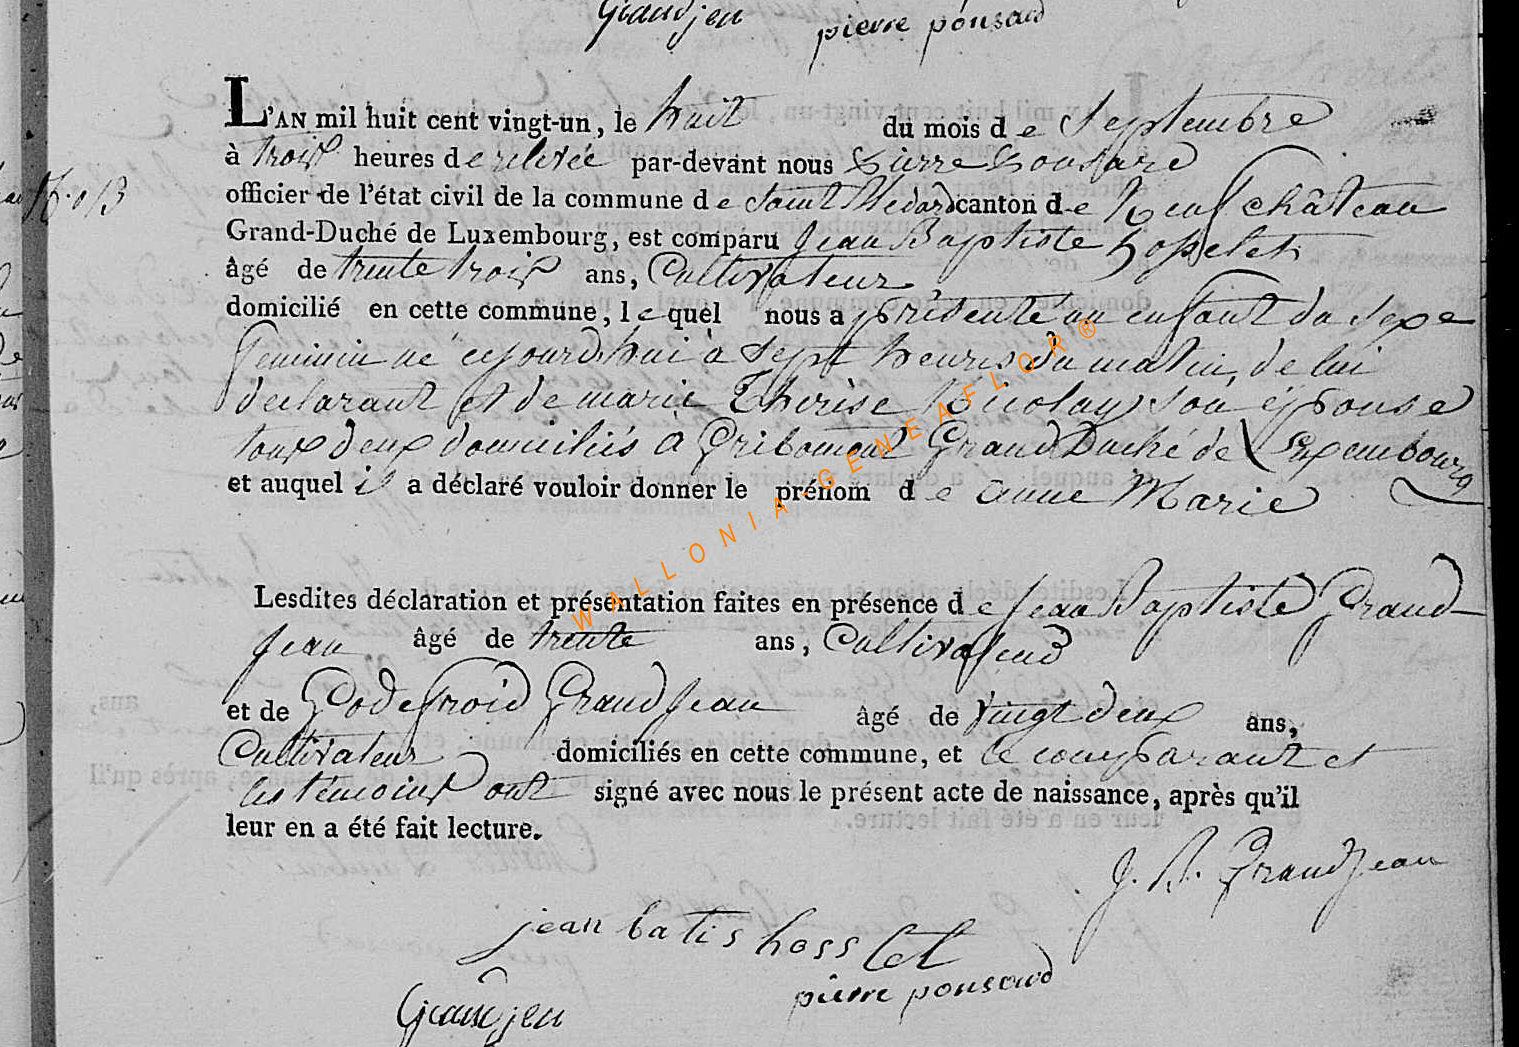 Grandjen pierre ponsard
L'AN mil huit cent vingt-un, le huit du mois de Septembre
à trois heures de relevée par-devant nous Pierre Ponsard
officier de l'état civil de la commune de Saint Médard canton de Neufchâteau
Grand-Duché de Luxembourg, est comparu Jean Baptiste hosselet
âgé de trente trois ans, Cultivateur
domicilié en cette commune, lequel nous a présenté un enfant du Sexe
feminin né cejourd'hui à Sept heures du matin, de lui
declarant et de marie Thérèse Nicolay Son épouse
tous deux domiciliés à Gribomont Grand Duché de Luxembourg
et auquel il a déclaré vouloir donner le prénom de anne Marie
Lesdites déclaration et présentation faites en présence de Jean Baptiste Grand-
Jean âgé de trente ans, Cultivateur
et de Godefroid Grand Jean âgé de vingt deux ans,
Cultivateur domiciliés en cette commune, et le comparant et
les témoins ont signé avec nous le présent acte de naissance, après qu'il
leur en a été fait lecture.
J. B. Grand Jean
jean batis hosslet
Grandjen pierre ponsard
WALLONIA-GENEAFLOR®